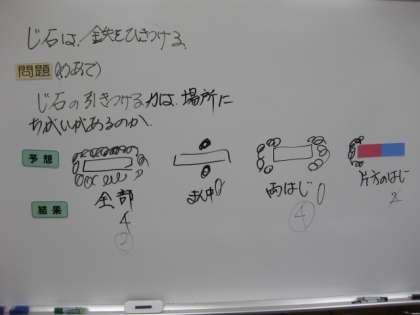 じ石は、鉄をひきつける。
問題 (めあて)
じ石の引きつける力は、場所に
ちがいがあるのか。
予想
全部 まん中 0 両はじ 0 片方のはじ
結果
4 ④ 2
②